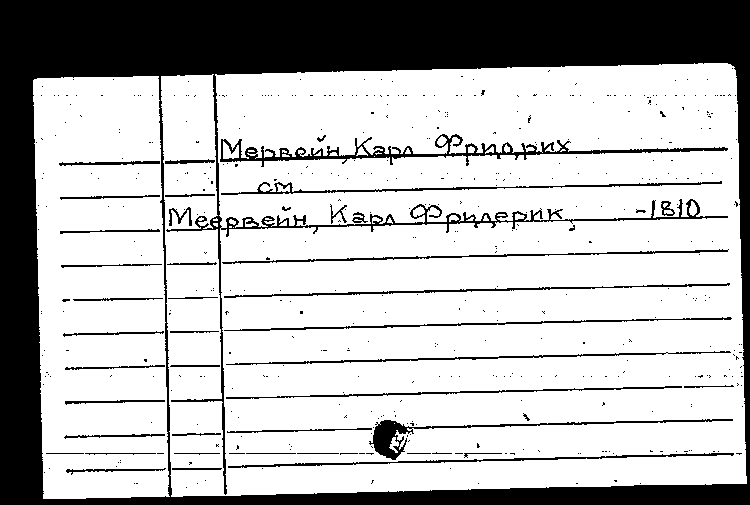 Мервейн, Карл Фридрих
см.
Меервейн, Карл Фридерик, -1810